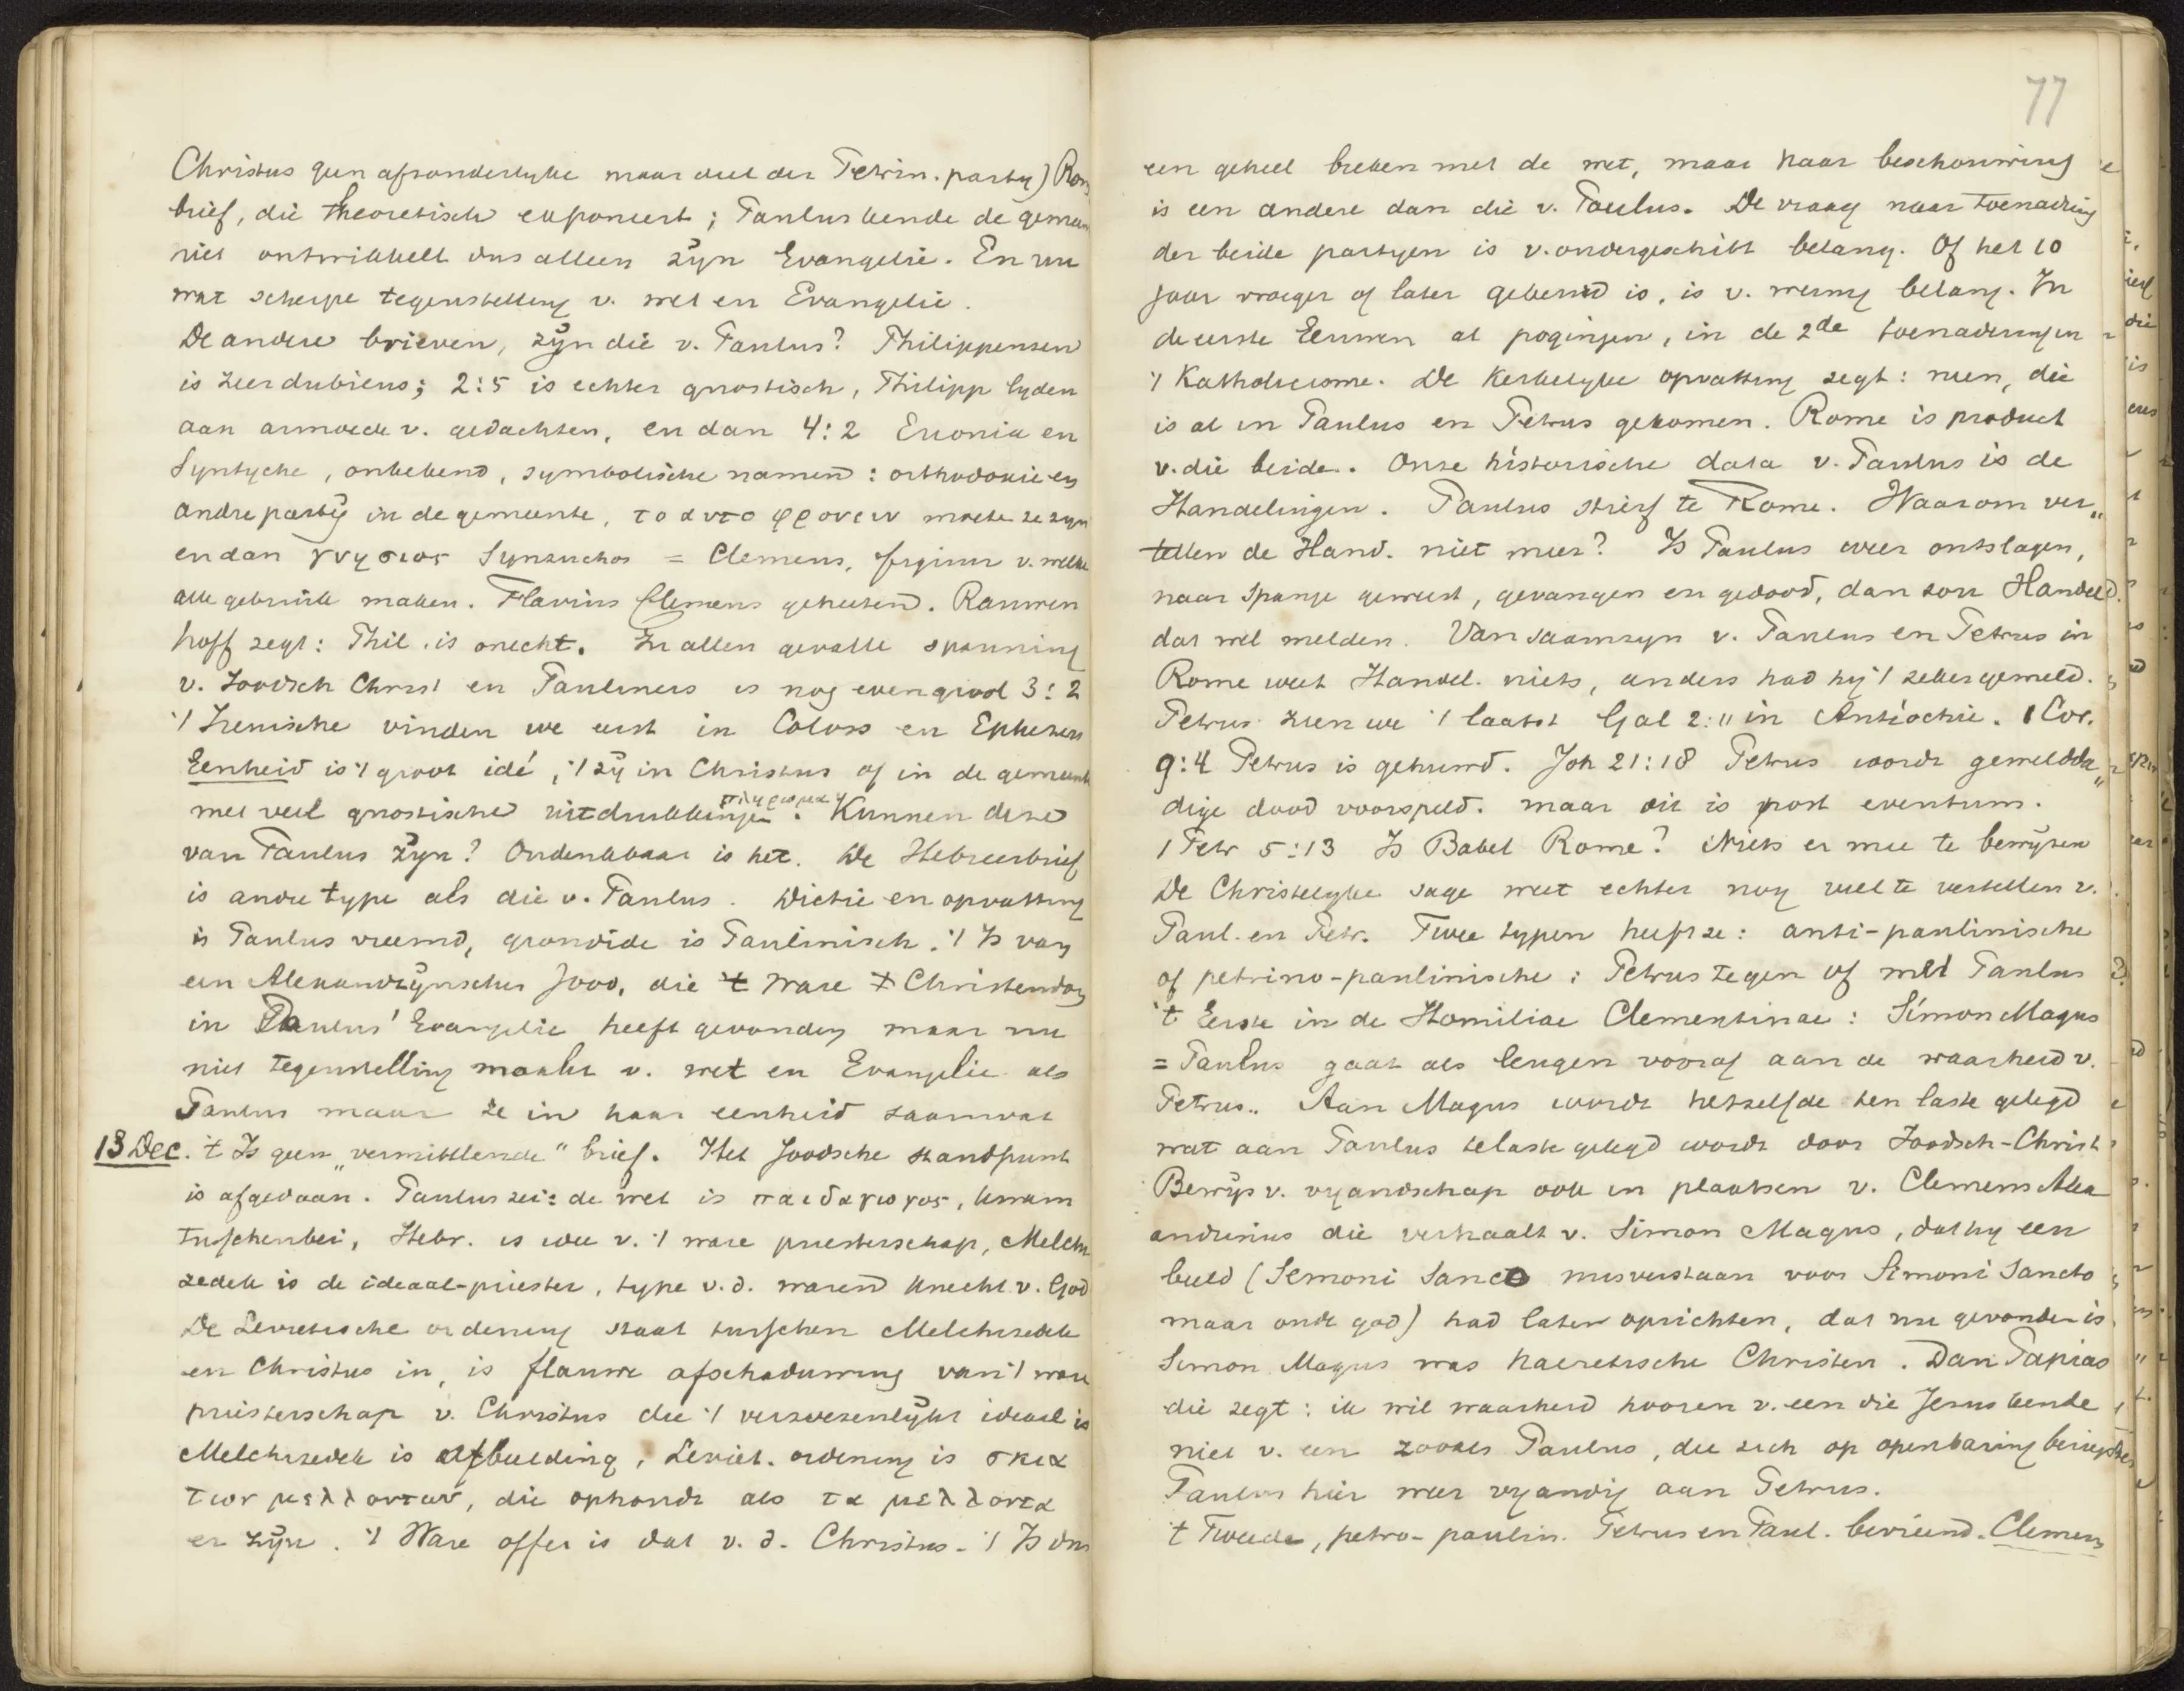 Christus geen afzonderlyke maar deel der Petrin. party) Rom
brief, die theoretisch exponeert; Paulus kende de gemeen
niet ontwikkelt dus alleen zyn Evangelie. En nu
wat scherpe tegenstelling v. wet en Evangelie.
De andere brieven, zyn die v. Paulus? Philippensen
is zeer dubieus; 2:5 is echter gnostisch, Philipp lyden
aan armoede v. gedachten, en dan 4:2 Euonia en
Syntyche, onbekend, symbolische namen: orthodoxie en
andre party in de gemeente, το αυτο φρονειν moeten ze zyn
en dan γνησιος Synzuchos = Clemens, figuur v. welke
alle gebruik maken. Flavius Clemens geheeten. Rauwen
hoff zegt: Phil. is onecht. In allen gevalle spanning
v. Joodsch Christ en Pauliners is nog even groot 3:2
't Irenische vinden we eerst in Coloss en Ephesen
Eenheid is 't groot idé, 't zy in Christus of in de gemeente
πληρωμα
met veel gnostische uitdrukkingen. Kunnen deze
van Paulus zyn? Ondenkbaar is het. De Hebreerbrief
is andre type als die v. Paulus. Dictie en opvatting
is Paulus vreemd, grondide is Paulinisch. 't Is van
een Alexandrynschen Jood, die 't ware Christendom
in Paulus' Evangelie heeft gevonden maar nu
niet tegenstelling maakt v. wet en Evangelie als
Paulus maar ze in haar eenheid saamvat
13 Dec. 't Is geen „vermittlende" brief. Het Joodsche standpunt
is afgedaan. Paulus zei: de wet is παιδαγωγος, kwam
tusschenbei, Hebr. is idee v. 't ware priesterschap, Melchi
zedek is de ideaal-priester, type v. d. waren knecht v. God
De Levietische ordening staat tusschen Melchizedek
en Christus in, is flauwe afschaduwing van 't ware
priesterschap v. Christus die 't verwezenlykt ideaal is
Melchizedek is afbeelding, Leviet. ordening is σκια
των μελλοντων, die ophoudt als τα μελλοντα
er zyn. 't Ware offer is dat v. d. Christus. 't Is dus
77
een geheel breken met de wet, maar haar beschouwing
is een andere dan die v. Paulus. De vraag naar toenadring
der beide partyen is v. ondergeschikt belang. Of het 10
jaar vroeger of later gebeurd is, is v. weinig belang. In
de eerste Eeuwen al pogingen, in de 2de toenaderingen
't Katholicisme. De Kerkelyke opvatting zegt: neen, die
is al in Paulus en Petrus gekomen. Rome is product
v. die beide. Onze historische data v. Paulus is de
Handelingen. Paulus stierf te Rome. Waarom ver„
tellen de Hand. niet meer? Is Paulus weer ontslagen,
naar Spanje geweest, gevangen en gedood, dan zou Handel
dat wel melden. Van saamzyn v. Paulus en Petrus in
Rome weet Handel. niets, anders had hy 't zeker gemeld.
Petrus zien we 't laatst Gal 2:11 in Antiochie. 1 Cor.
9:4 Petrus is gehuwd. Joh 21:18 Petrus wordt gewelddaa„
dige dood voorspeld. maar dit is post eventum.
1 Petr 5:13 Is Babel Rome? Niets er mee te bewyzen
De Christelyke sage weet echter nog veel te vertellen v.
Paul. en Petr. Twee typen heeft ze: anti-paulinische
of petrino-paulinische: Petrus tegen of met Paulus
't Eerste in de Homiliae Clementinae: Simon Magus
= Paulus gaat als leugen vooraf aan de waarheid v.
Petrus. Aan Magus wordt hetzelfde ten laste gelegd
wat aan Paulus telaste gelegd wordt door Joodsch-Christ
Bewys v. vyandschap ook in plaatsen v. Clemens Alex
andrinus die verhaalt v. Simon Magus, dat hy een
beeld (Semoni Sanco misverstaan voor Simoni Sancto
maar oude god) had laten oprichten, dat nu gevonden is.
Simon Magus was haeretische Christen. Dan Papias
die zegt: ik wil waarheid hooren v. een die Jesus kende
niet v. een zooals Paulus, die zich op openbaring beriep
Paulus hier weer vyandig aan Petrus.
't Tweede, petro-paulin. Petrus en Paul. bevriend. Clemens